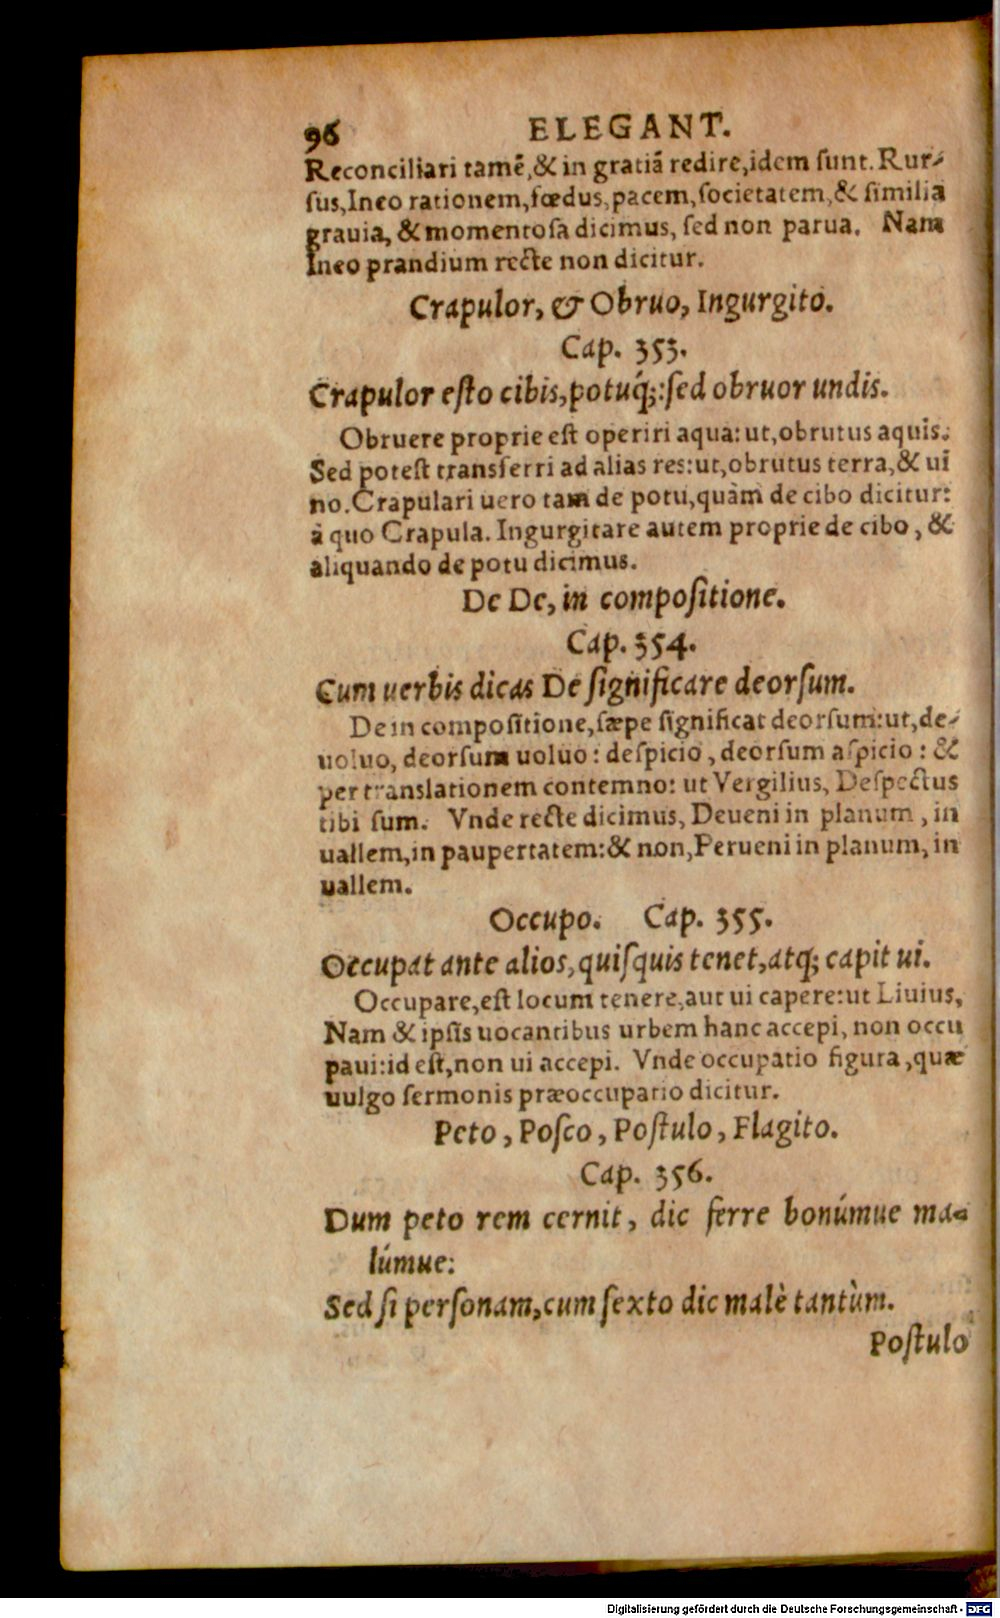 96 ELEGANT.
Reconciliari tamẽ, & in gratiã redire, idem sunt. Rur-
sus, Ineo rationem, fœdus, pacem, societatem, & similia
grauia, & momentosa dicimus, sed non parua. Nam
Ineo prandium recte non dicitur.
Crapulor, & Obruo, Ingurgito.
Cap. 353.
Crapulor esto cibis, potuq́;: sed obruor undis.
Obruere proprie est operiri aqua: ut, obrutus aquis.
Sed potest transferri ad alias res: ut, obrutus terra, & ui
no. Crapulari uero tam de potu, quàm de cibo dicitur:
à quo Crapula. Ingurgitare autem proprie de cibo, &
aliquando de potu dicimus.
De De, in compositione.
Cap. 354.
Cum uerbis dicas De significare deorsum.
De in compositione, sæpe significat deorsum: ut, de-
uoluo, deorsum uoluo: despicio, deorsum aspicio: &
per translationem contemno: ut Vergilius, Despectus
tibi sum. Vnde recte dicimus, Deueni in planum, in
uallem, in paupertatem: & non, Perueni in planum, in
uallem.
Occupo. Cap. 355.
Occupat ante alios, quisquis tenet, atq; capit ui.
Occupare, est locum tenere, aut ui capere: ut Liuius,
Nam & ipsis uocantibus urbem hanc accepi, non occu
paui: id est, non ui accepi. Vnde occupatio figura, quæ
uulgo sermonis præoccupatio dicitur.
Peto, Posco, Postulo, Flagito.
Cap. 356.
Dum peto rem cernit, dic ferre bonúmue ma-
lúmue:
Sed si personam, cum sexto dic malè tantùm.
Postulo
Digitalisierung gefördert durch die Deutsche Forschungsgemeinschaft - DFG